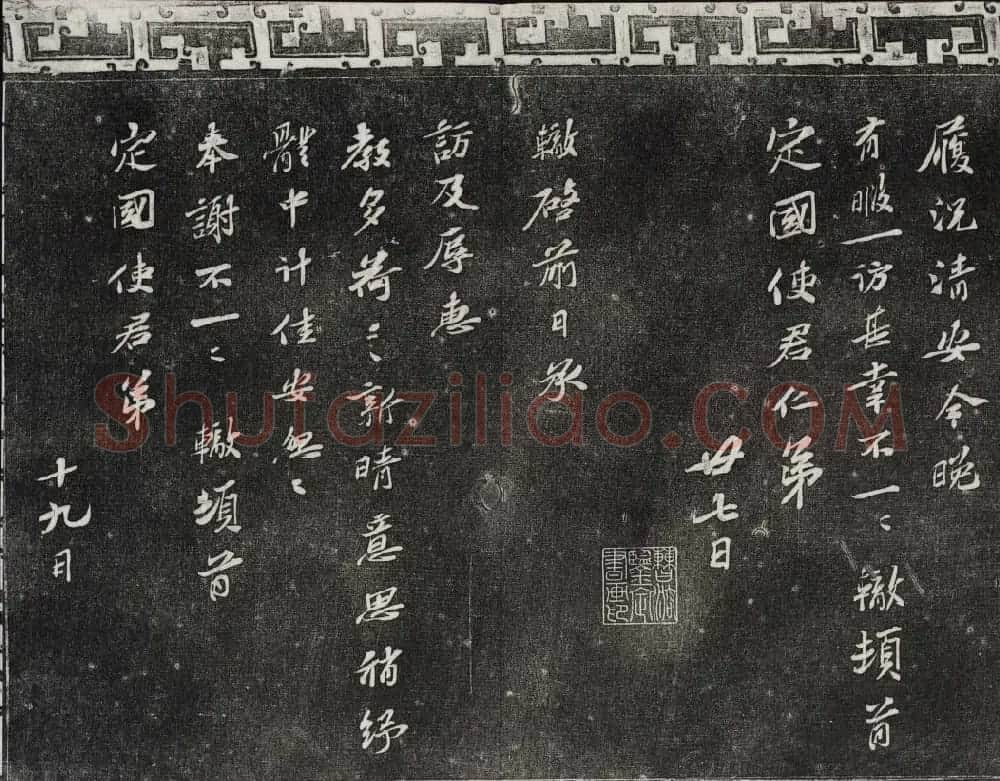 履況清安今晚
有暇一訪甚幸不一〻轍頓首
定國使君仁弟
廿七日
轍啓前日承
訪及辱惠
教多荷〻新晴意思稍紓
體中計佳安無〻
奉謝不一〻轍頓首
定國使君弟
十九日
Shufaziliao.COM